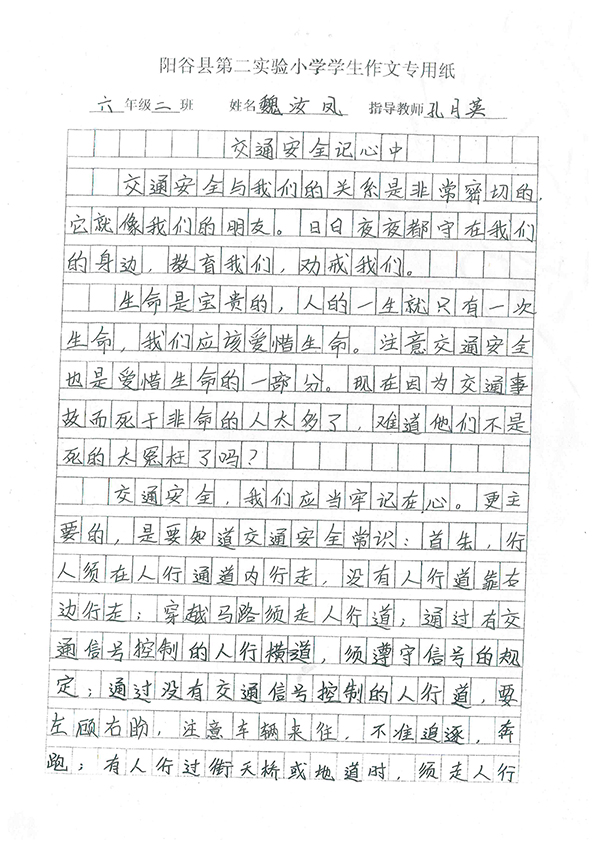 阳谷县第二实验小学学生作文专用纸
六年级二班 姓名魏汝凤 指导教师孔月英
交通安全记心中
交通安全与我们的关系是非常密切的，
它就像我们的朋友。日日夜夜都守在我们
的身边，教育我们，劝戒我们。
生命是宝贵的，人的一生就只有一次
生命，我们应该爱惜生命。注意交通安全
也是爱惜生命的一部分。现在因为交通事
故而死于非命的人太多了，难道他们不是
死的太冤枉了吗？
交通安全，我们应当牢记在心。更主
要的，是要知道交通安全常识：首先，行
人须在人行通道内行走，没有人行道靠右
边行走；穿越马路须走人行道；通过有交
通信号控制的人行横道，须遵守信号的规
定；通过没有交通信号控制的人行道，要
左顾右盼，注意车辆来往，不准追逐，奔
跑；有人行过街天桥或地道时，须走人行